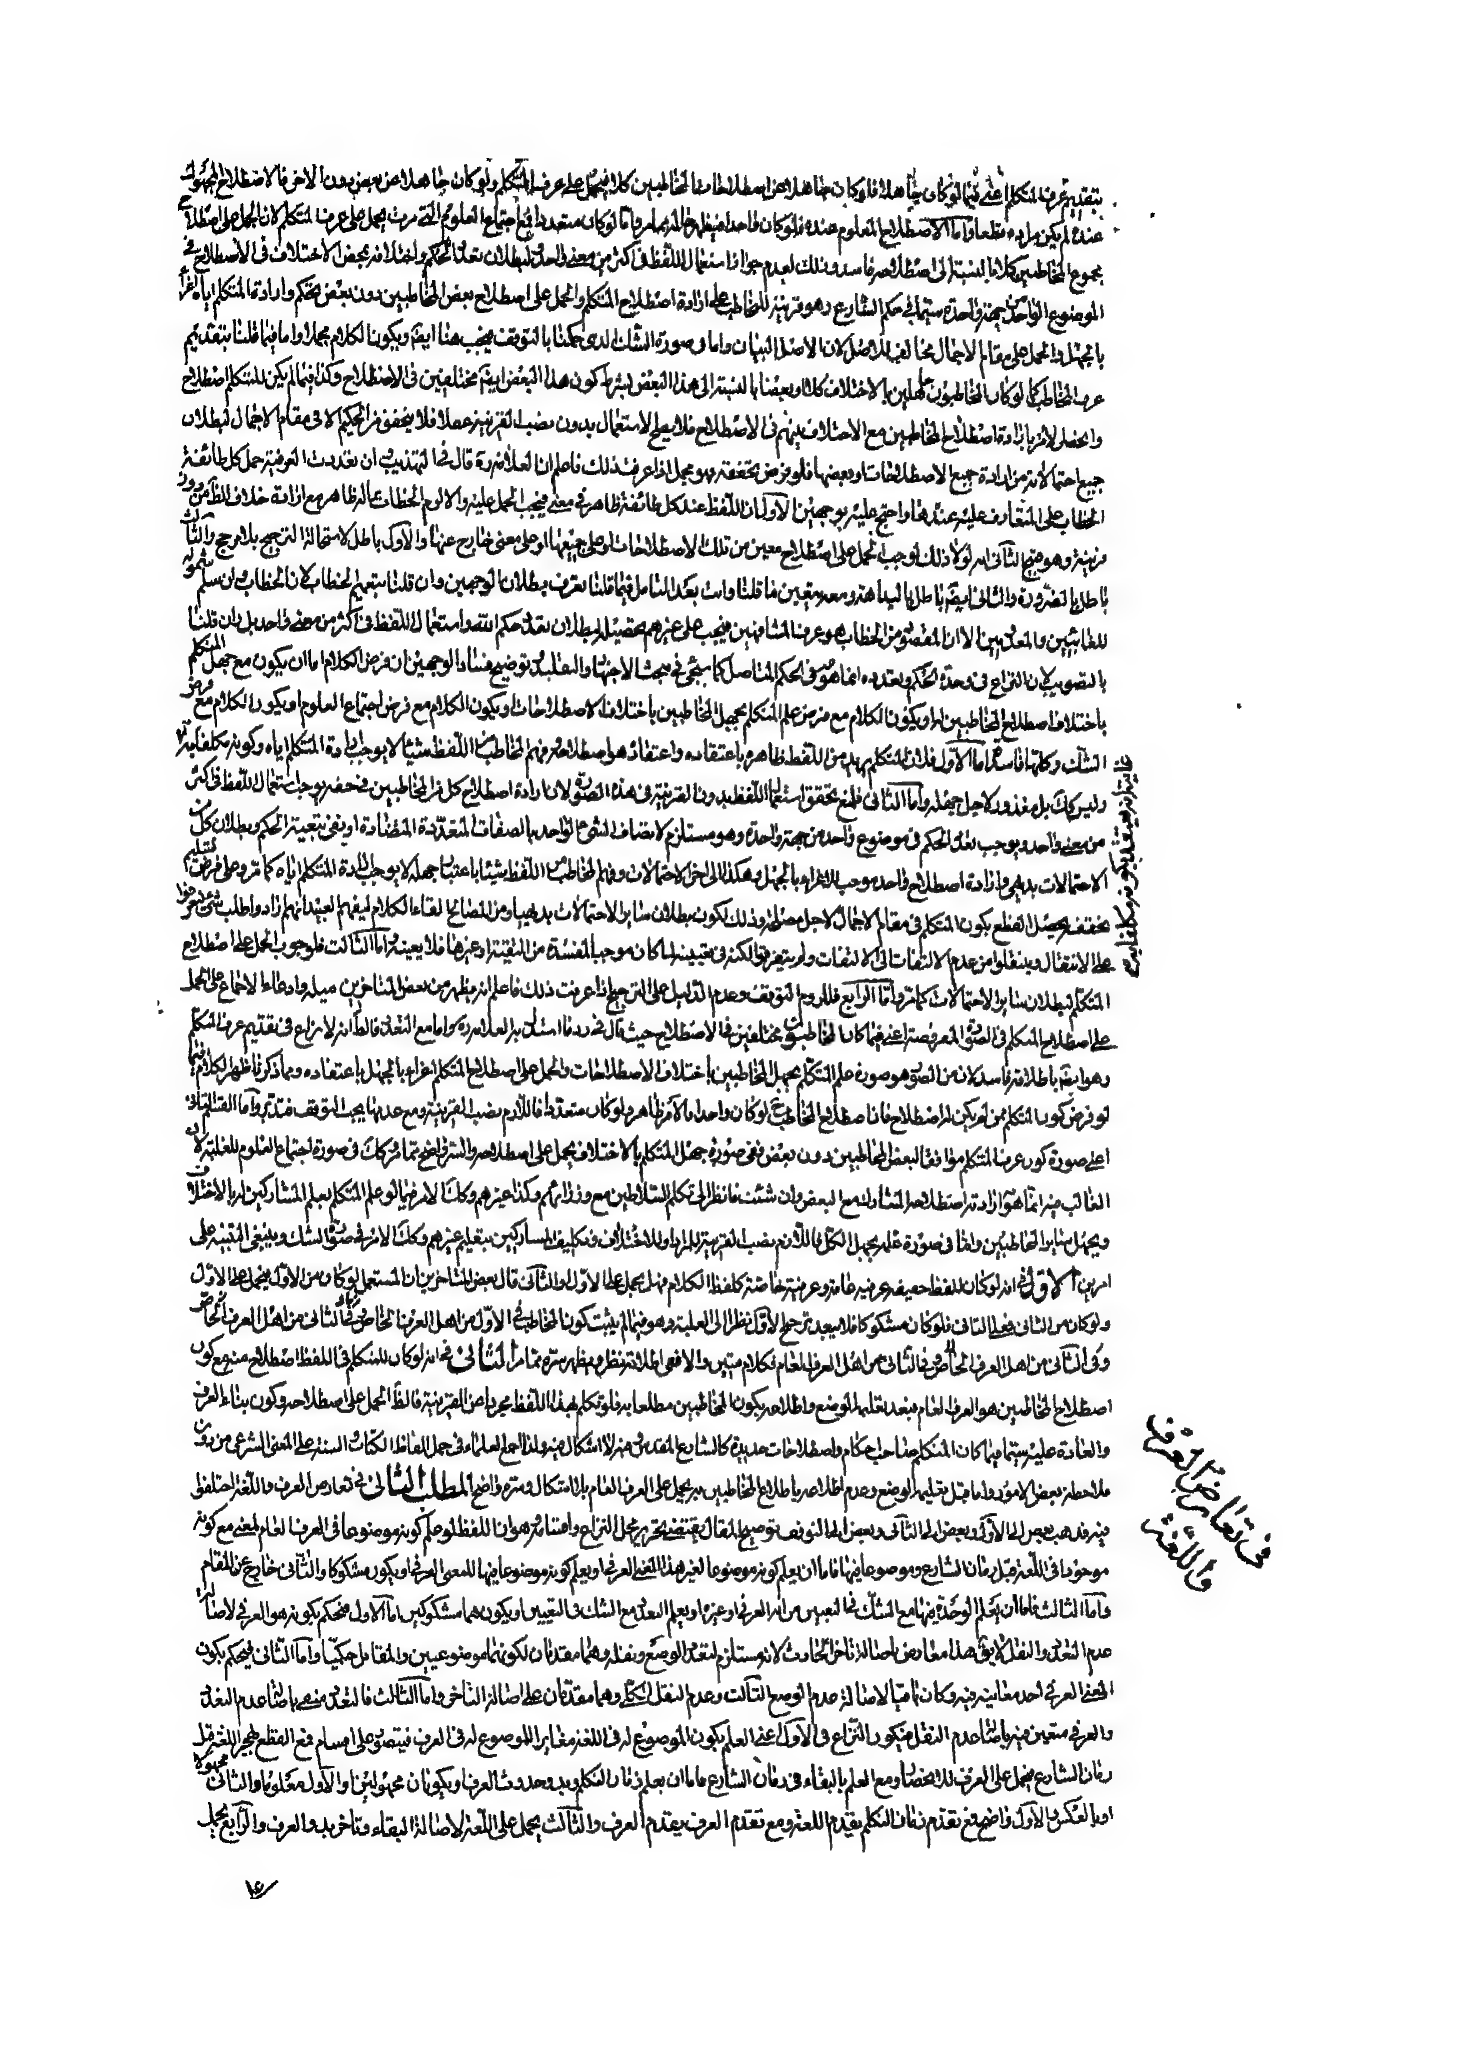 بتقديم عرف المتكلم اعني فيما لو كان جاهلا فلو كان جاهلا عن اصطلاحات المخاطبين كلا فيحمل على عرف المتكلم ولو كان جاهلا عن بعض دون الاخر فالاصطلاح المجهول
عنده لم يكن مراده قطعا واما الاصطلاح المعلوم عنده فلو كان واحدا فيظهر حاله مما مر واما لو كان متعددا فمع اجتماع العلوم التي مرت يحمل على عرف المتكلم لان الحمل على اصطلاح
مجموع المخاطبين كلا بالنسبة الى اصطلاحه فاسد وذلك لعدم جواز استعمال اللفظ في اكثر من معنى واحد ولبطلان تعدد الحكم واختلافه بمحض الاختلاف في الاصطلاح في
الموضوع الواحد من جهة واحدة سيما في حكم الشارع وهو قرينة للمخاطب على ارادة اصطلاح المتكلم والحمل على اصطلاح بعض المخاطبين دون بعض تحكم وارادة المتكلم اياه اغراء
بالجهل والحمل على مقام الاجمال مخالف للاصل لان الاصل البيان واما في صورة الشك الذي حكمنا بالتوقف فيجب هنا ايضا ويكون الكلام مجملا واما فيما قلنا بتقديم
عرف المخاطب كما لو كان المخاطبون جاهلين بالاختلاف كلا او بعضا بالنسبة الى هذا البعض بشرط كون هذا البعض ايضا مختلفين في الاصطلاح وكذا فيما لم يكن للمتكلم اصطلاح
وانحصر الامر بارادة اصطلاح المخاطبين مع الاختلاف بينهم في الاصطلاح فلا يصلح الاستعمال بدون نصب القرينة عقلا فلا يتحقق من الحكيم الا في مقام الاجمال لبطلان
جميع احتمالاته من ارادة جميع الاصطلاحات او بعضها فلو فرض تحققه فهو مجمل اذا عرفت ذلك فاعلم ان العلامة ره قال في التهذيب ان تعددت العرفية حمل كل طائفة
الخطاب على المتعارف عليه عندها واحتج عليه بوجهين الاول ان اللفظ عند كل طائفة ظاهر في معنى فيجب الحمل عليه والا لزم الخطاب بما له ظاهر مع ارادة خلاف الظاهر من دون
قرينة وهو قبيح الثاني انه لو لا ذلك لوجب الحمل على اصطلاح معين من تلك الاصطلاحات او على جميعها او على معنى خارج عنها والاول باطل لاستحالة الترجيح بلا مرجح والثالث
باطل بالضرورة والثاني ايضا باطل بالبداهة ومعه يتعين ما قلنا وانت بعد التامل فيما قلنا تعرف بطلان الوجهين وان قلنا بتعميم الخطاب لان الخطاب وان سلم شموله
للغائبين والمعدومين الا ان المقصود من الخطاب هو عرف المشافهين فيجب على غيرهم تحصيله لبطلان تعدد حكم الله واستعمال اللفظ في اكثر من معنى واحد بل وان قلنا
بالتصويب لان النزاع في وحدة الحكم وتعدده انما هو في الحكم المتاصل كما سيجئ في مبحث الاجتهاد والتقليد توضيح فساد الوجهين ان فرض الكلام اما ان يكون مع جهل المتكلم
باختلاف اصطلاح المخاطبين او يكون الكلام مع فرض علم المتكلم بجهل المخاطبين باختلاف الاصطلاحات او يكون الكلام مع فرض اجتماع العلوم او يكون الكلام مع فرض
الشك وكلها فاسد اما الاول فلان المتكلم يريد من اللفظ ظاهره باعتقاده واعتقاده هو اصطلاحه وفهم المخاطب من اللفظ شيئا لا يوجب ارادة المتكلم اياه وكونه مكلفا به
وليس كك بل معذور لاجل جهله واما الثاني فلمنع تحقق استعمال اللفظ بدون القرينة في هذه الصورة لان ارادة اصطلاح كل من المخاطبين في حقه يوجب استعمال اللفظ في اكثر
من معنى واحد ويوجب تعدد الحكم في موضوع واحد من جهة واحدة وهو مستلزم لاتصاف الشئ الواحد بالصفات المتعددة المتضادة او نفي تبعية الحكم وبطلان كل من
الاحتمالات بديهي وارادة اصطلاح واحد موجب للاغراء بالجهل وهكذا الى اخر الاحتمالات وفهم المخاطب من اللفظ شيئا باعتبار جهله لا يوجب ارادة المتكلم اياه كما مر وعلى فرض تسليم
تحققه يحصل القطع بكون المتكلم في مقام الاجمال لاجل مصلحة وذلك لكون بطلان سائر الاحتمالات بديهيا ومن المصالح القاء الكلام ليفهم العبد انهم اراد واطلب شئ بعد فرض
على الانتقال وينتقلوا من عدم الالتفات الى الالتفات ولم يتعرض لكنه في تعيينه لما كان موجب المفسدة من التقية او غيرها فلا يعينه واما الثالث فلوجوب الحمل على اصطلاح
المتكلم لبطلان سائر الاحتمالات كما مر واما الرابع فللزوم التوقف وعدم الدليل على الترجيح اذا عرفت ذلك فاعلم انه يظهر من بعض المتاخرين ميله وادعاء الاجماع على الحمل
على اصطلاح المتكلم في الصورة المفروضة اعني فيما كان المخاطبون مختلفين في الاصطلاح حيث قال في رد ما استدل به العلامة ره واما مع التعدد فالظاهر انه لا نزاع في تقديم عرف المتكلم
وهو ايضا باطلاقه فاسد لان من الصور هو صورة علم المتكلم بجهل المخاطبين باختلاف الاصطلاحات والحمل على اصطلاح المتكلم اغراء بالجهل باعتقاده ومما ذكرنا ظهر الكلام فيما
لو فرض كون المتكلم ممن لم يكن له اصطلاح فان اصطلاح المخاطب ح لو كان واحدا فالامر ظاهر ولو كان متعددا فاللازم نصب القرينة ومع عدمها يجب التوقف فتدبر واما القسم الثاني
اعني صورة كون عرف المتكلم موافقا لبعض المخاطبين دون بعض ففي صورة جهل المتكلم بالاختلاف يحمل على اصطلاحه والسر واضح مما مر وكك في صورة اجتماع العلوم للغلبة لان
الغالب فيه انما هو ارادته اصطلاحه المشارك مع البعض وان شئت فانظر الى تكلم السلاطين مع وزرائهم وكذا غيرهم وكك الامر فيما لو علم المتكلم بعلم المشاركين له بالاختلاف
وبجهل سائر المخاطبين واما في صورة علمه بجهل الكل فاللازم نصب القرينة للمراد وللاختلاف وتكليف المشاركين بتعليم غيرهم وكك الامر في صورة الشك وينبغي التنبيه على
امرين الاول في انه لو كان للفظ حقيقة عرفية عامة وعرفية خاصة كلفظ الكلام فهل يحمل على الاول او الثاني قال بعض المتاخرين ان المستعمل لو كان من الاول فيحمل على الاول
ولو كان من الثاني فعلى الثاني فلو كان مشكوكا فلا يبعد ترجيح الاول نظرا الى الغلبة وهو فيما لم يثبت كون المخاطب في الاول من اهل العرف الخاص وفي الثاني من اهل العرف العام
وفي الثاني من اهل العرف الخاص وفي الثاني من اهل العرف العام فكلام متين والا ففي اطلاقه نظر ويظهر سره مما مر الثاني في انه لو كان للمتكلم في اللفظ اصطلاح منه مع كون
اصطلاح المخاطبين هو العرف العام فبعد نقلهم الوضع واطلاعه بكون المخاطبين مطلعا به فلو تكلم بهذا اللفظ مجردا عن القرينة فالظاهر الحمل على اصطلاحه وكون بناء العرف
والعادة عليه سيما فيما كان المتكلم صاحب احكام واصطلاحات جديدة كالشارع المقدس فهو لا اشكال فيه ولذا اجمع العلماء في حمل الفاظ الكتاب والسنة على المعنى الشرعي من دون
ملاحظة بعض الامور واما قبل تعليمهم الوضع وعدم اطلاعه باطلاع المخاطبين به يحمل على العرف العام بلا اشكال وسره واضح المطلب الثاني في تعارض العرف واللغة اختلفوا
فيه فذهب بعض الى الاول وبعض الى الثاني وبعض الى التوقف وتوضيح المقال يقتضي تحرير محل النزاع واقسامه وهو ان اللفظ لو علم كونه موضوعا في العرف العام لمعنى مع كونه
موجودا في اللغة قبل زمان الشارع وموضوعا فيها فاما ان يعلم كونه موضوعا لغير هذا المعنى العرفي او يعلم كونه موضوعا فيها للمعنى العرفي او يكون مشكوكا والثاني خارج عن المقام
واما الثالث فاما ان يعلم الوحدة فيها مع الشك في التعيين من انه العرفي او غيره او يعلم التعدد مع الشك في التعيين او يكون هما مشكوكين اما الاول فيحكم بكونه هو العرفي لاصالة
عدم التعدد والنقل لا يقال هذا معارض باصالة تاخر الحادث لانه مستلزم لتعدد الوضع ونقله وهما مقدمان لكونهما موضوعيين والمقابل حكميا واما الثاني فيحكم بكون
المعنى العرفي احد معانيه فيه وكان نافيا لاصالة عدم الوضع الثالث وعدم النقل الكلي وهما مقدمان على اصالة التاخر واما الثالث فالتعدد منفي باصالة عدم التعدد
والعرفي متعين فيه باصالة عدم النقل فيكون النزاع في الاول اعني العلم بكون الموضوع له في اللغة مغايرا للموضوع له في العرف فيتصور على اقسام فمع القطع بهجر اللغة قبل
زمان الشارع فيحمل على العرف للانحصار ومع العلم بالبقاء في زمان الشارع فاما ان يعلم زمان التكلم وبدو حدوث العرف او يكونان مجهولين او الاول معلوما والثاني مجهولا
او بالعكس والاول واضح فمع تقدم زمان التكلم يقدم اللغة ومع تقدم العرف يقدم العرف والثالث يحمل على اللغة لاصالة البقاء وتاخر بدو العرف والرابع يحمل
في تعارض العرف
واللغة